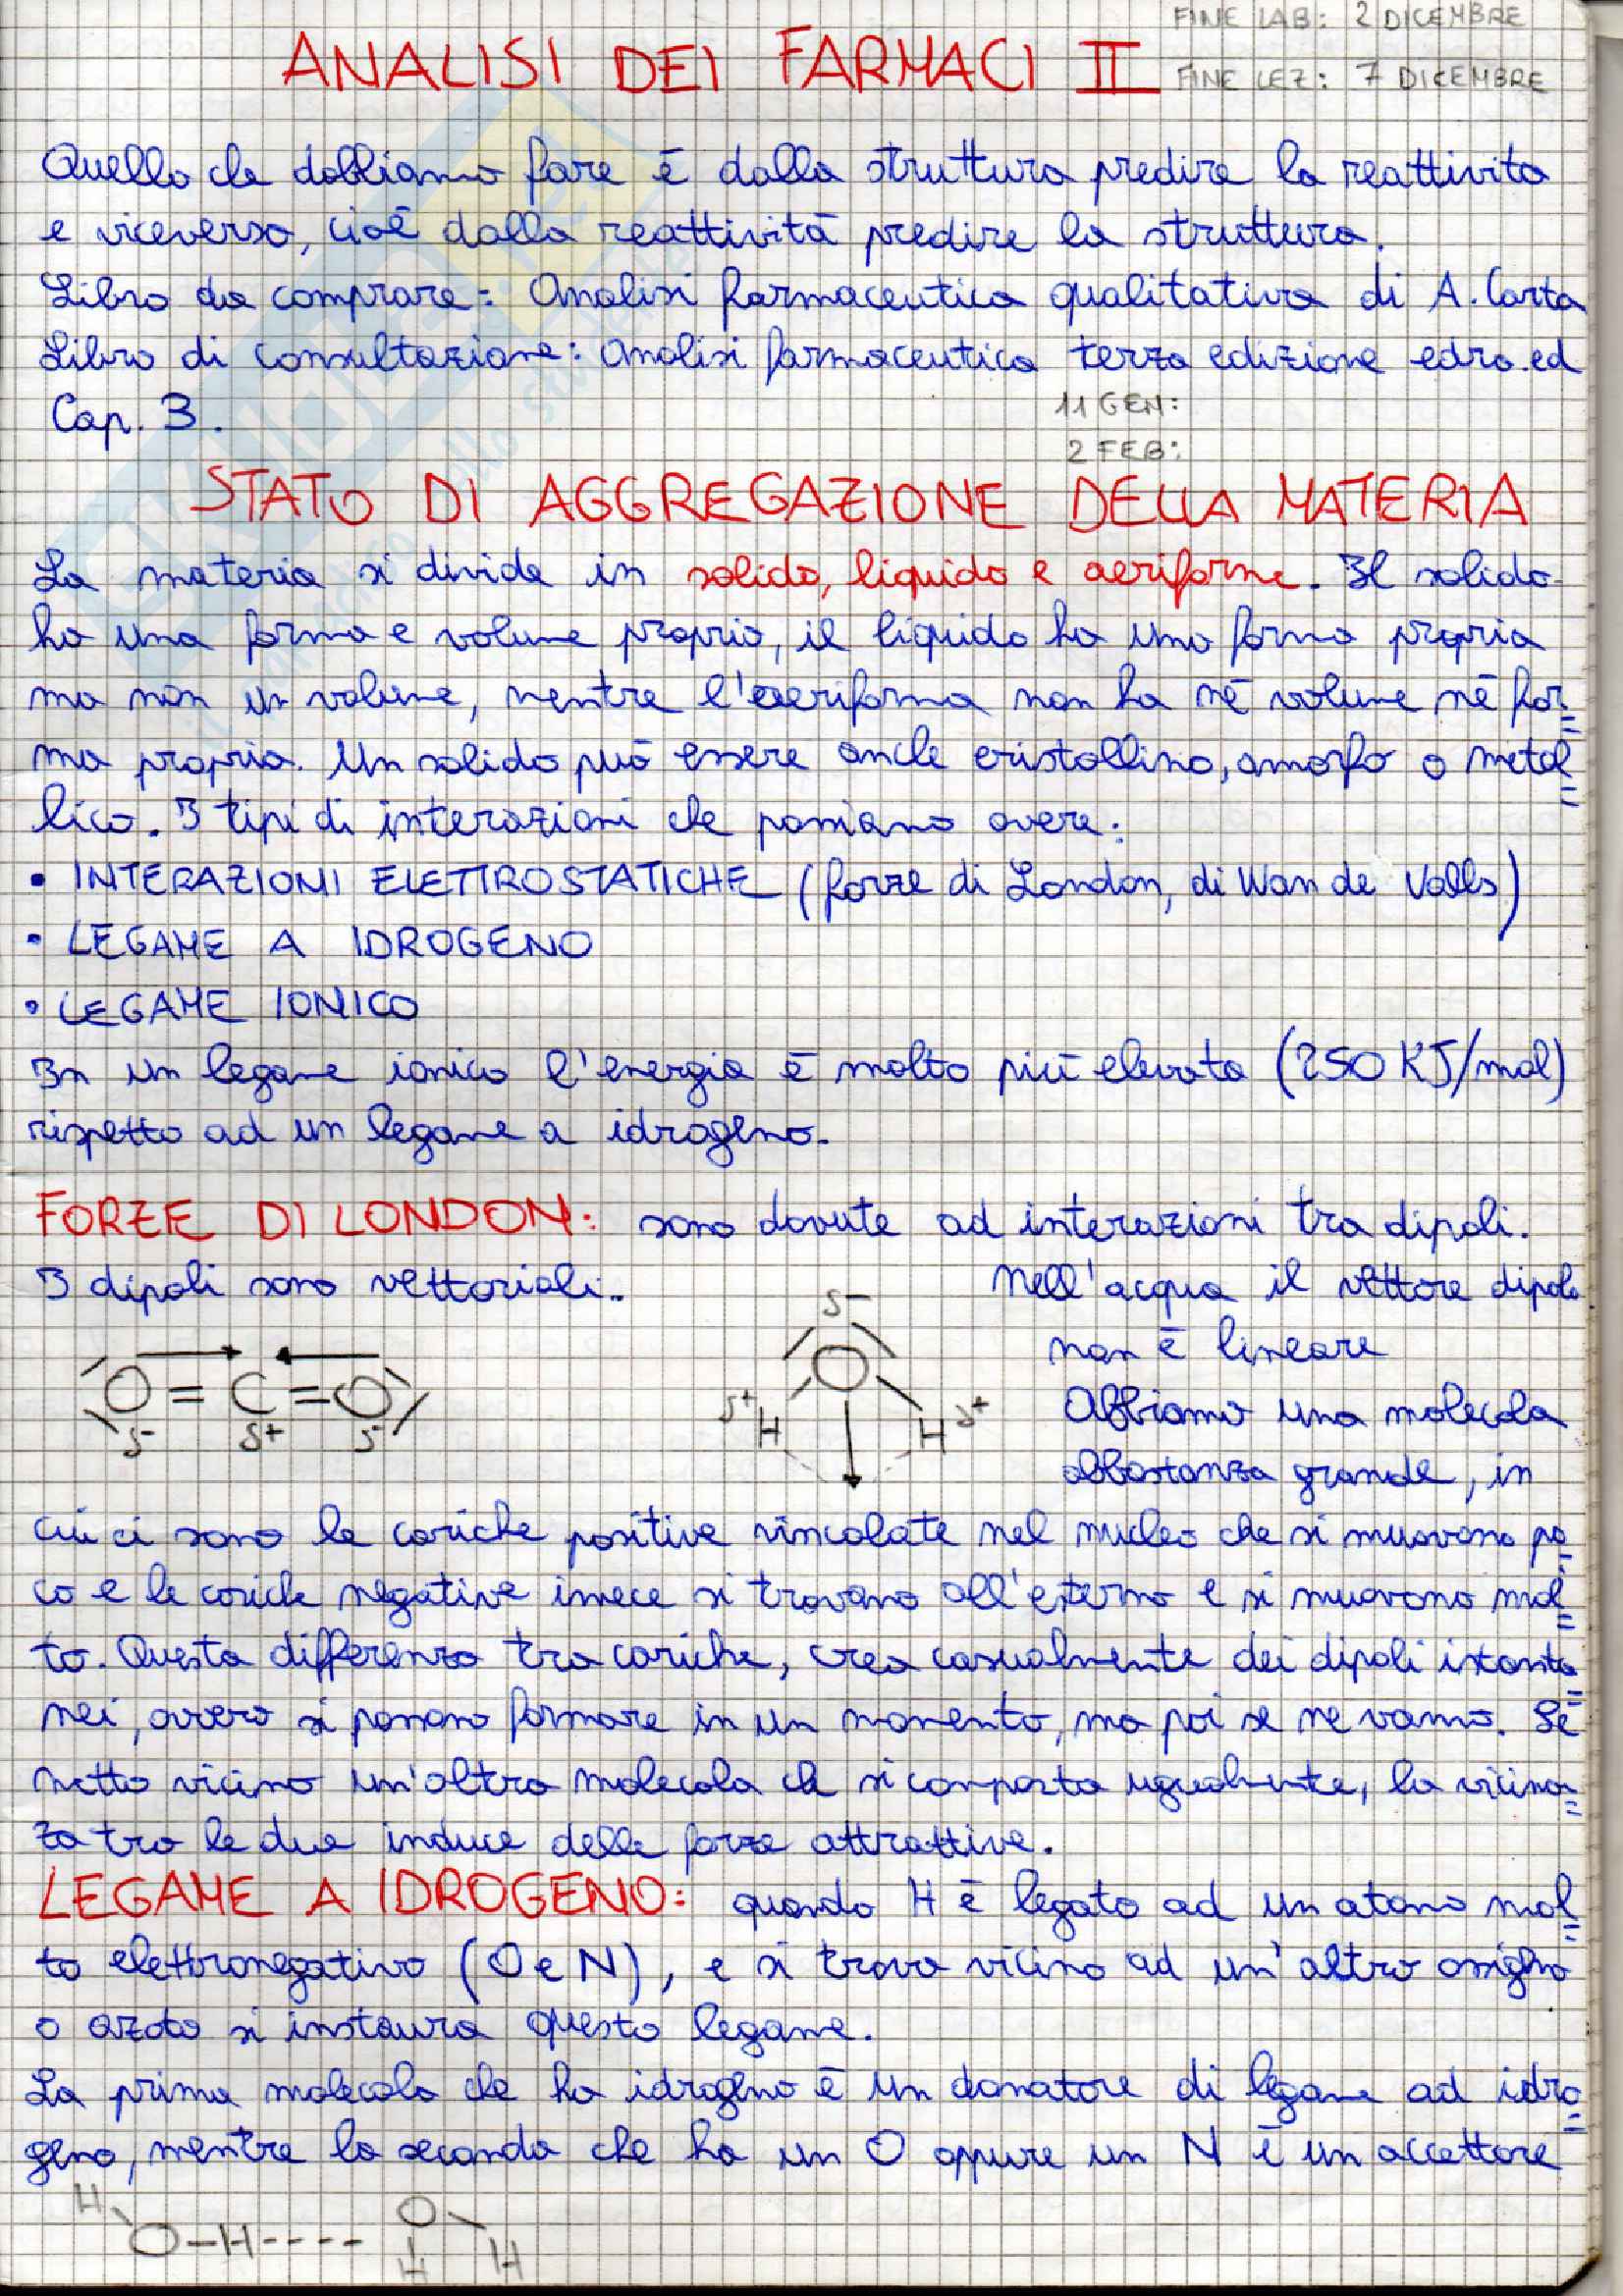 FINE LAB: 2 DICEMBRE
ANALISI DEI FARMACI II
FINE LEZ: 7 DICEMBRE
Quello che dobbiamo fare è dalla struttura predire la reattività
e viceversa, cioè dalla reattività predire la struttura.
Libro da comprare: Analisi farmaceutica qualitativa di A. Carta
Libro di consultazione: Analisi farmaceutica terza edizione edra.ed
Cap. 3.
11 GEN:
2 FEB:
STATO DI AGGREGAZIONE DELLA MATERIA
La materia si divide in solido, liquido e aeriforme. Il solido
ha una forma e volume proprio, il liquido ha una forma propria
ma non un volume, mentre l'aeriforma non ha nè volume nè for=
ma propria. Un solido può essere anche cristallino, amorfo o metal=
lico. I tipi di interazioni che possiamo avere:
• INTERAZIONI ELETTROSTATICHE (forze di London, di Wan de Valls)
• LEGAME A IDROGENO
• LEGAME IONICO
In un legame ionico l'energia è molto più elevata (250 KJ/mol)
rispetto ad un legame a idrogeno.
FORZE DI LONDON: sono dovute ad interazioni tra dipoli.
I dipoli sono vettoriali. Nell'acqua il vettore dipolo
non è lineare
O = C = O
δ- δ+ δ-
δ-
O
δ+ H H δ+
Abbiamo una molecola
abbastanza grande, in
cui ci sono le cariche positive vincolate nel nucleo che si muovono po=
co e le cariche negative invece si trovano all'esterno e si muovono mol=
to. Questa differenza tra cariche, crea casualmente dei dipoli istanta=
nei, ovvero si possono formare in un momento, ma poi se ne vanno. Se
metto vicino un'altra molecola che si comporta ugualmente, la vicinan=
za tra le due induce delle forze attrattive.
LEGAME A IDROGENO: quando H è legato ad un atomo mol=
to elettronegativo (O e N), e si trova vicino ad un'altro ossigeno
o azoto si instaura questo legame.
La prima molecola che ha idrogeno è un donatore di legame ad idro=
geno, mentre la seconda che ha un O oppure un N è un accettore
H O-H---- O H H